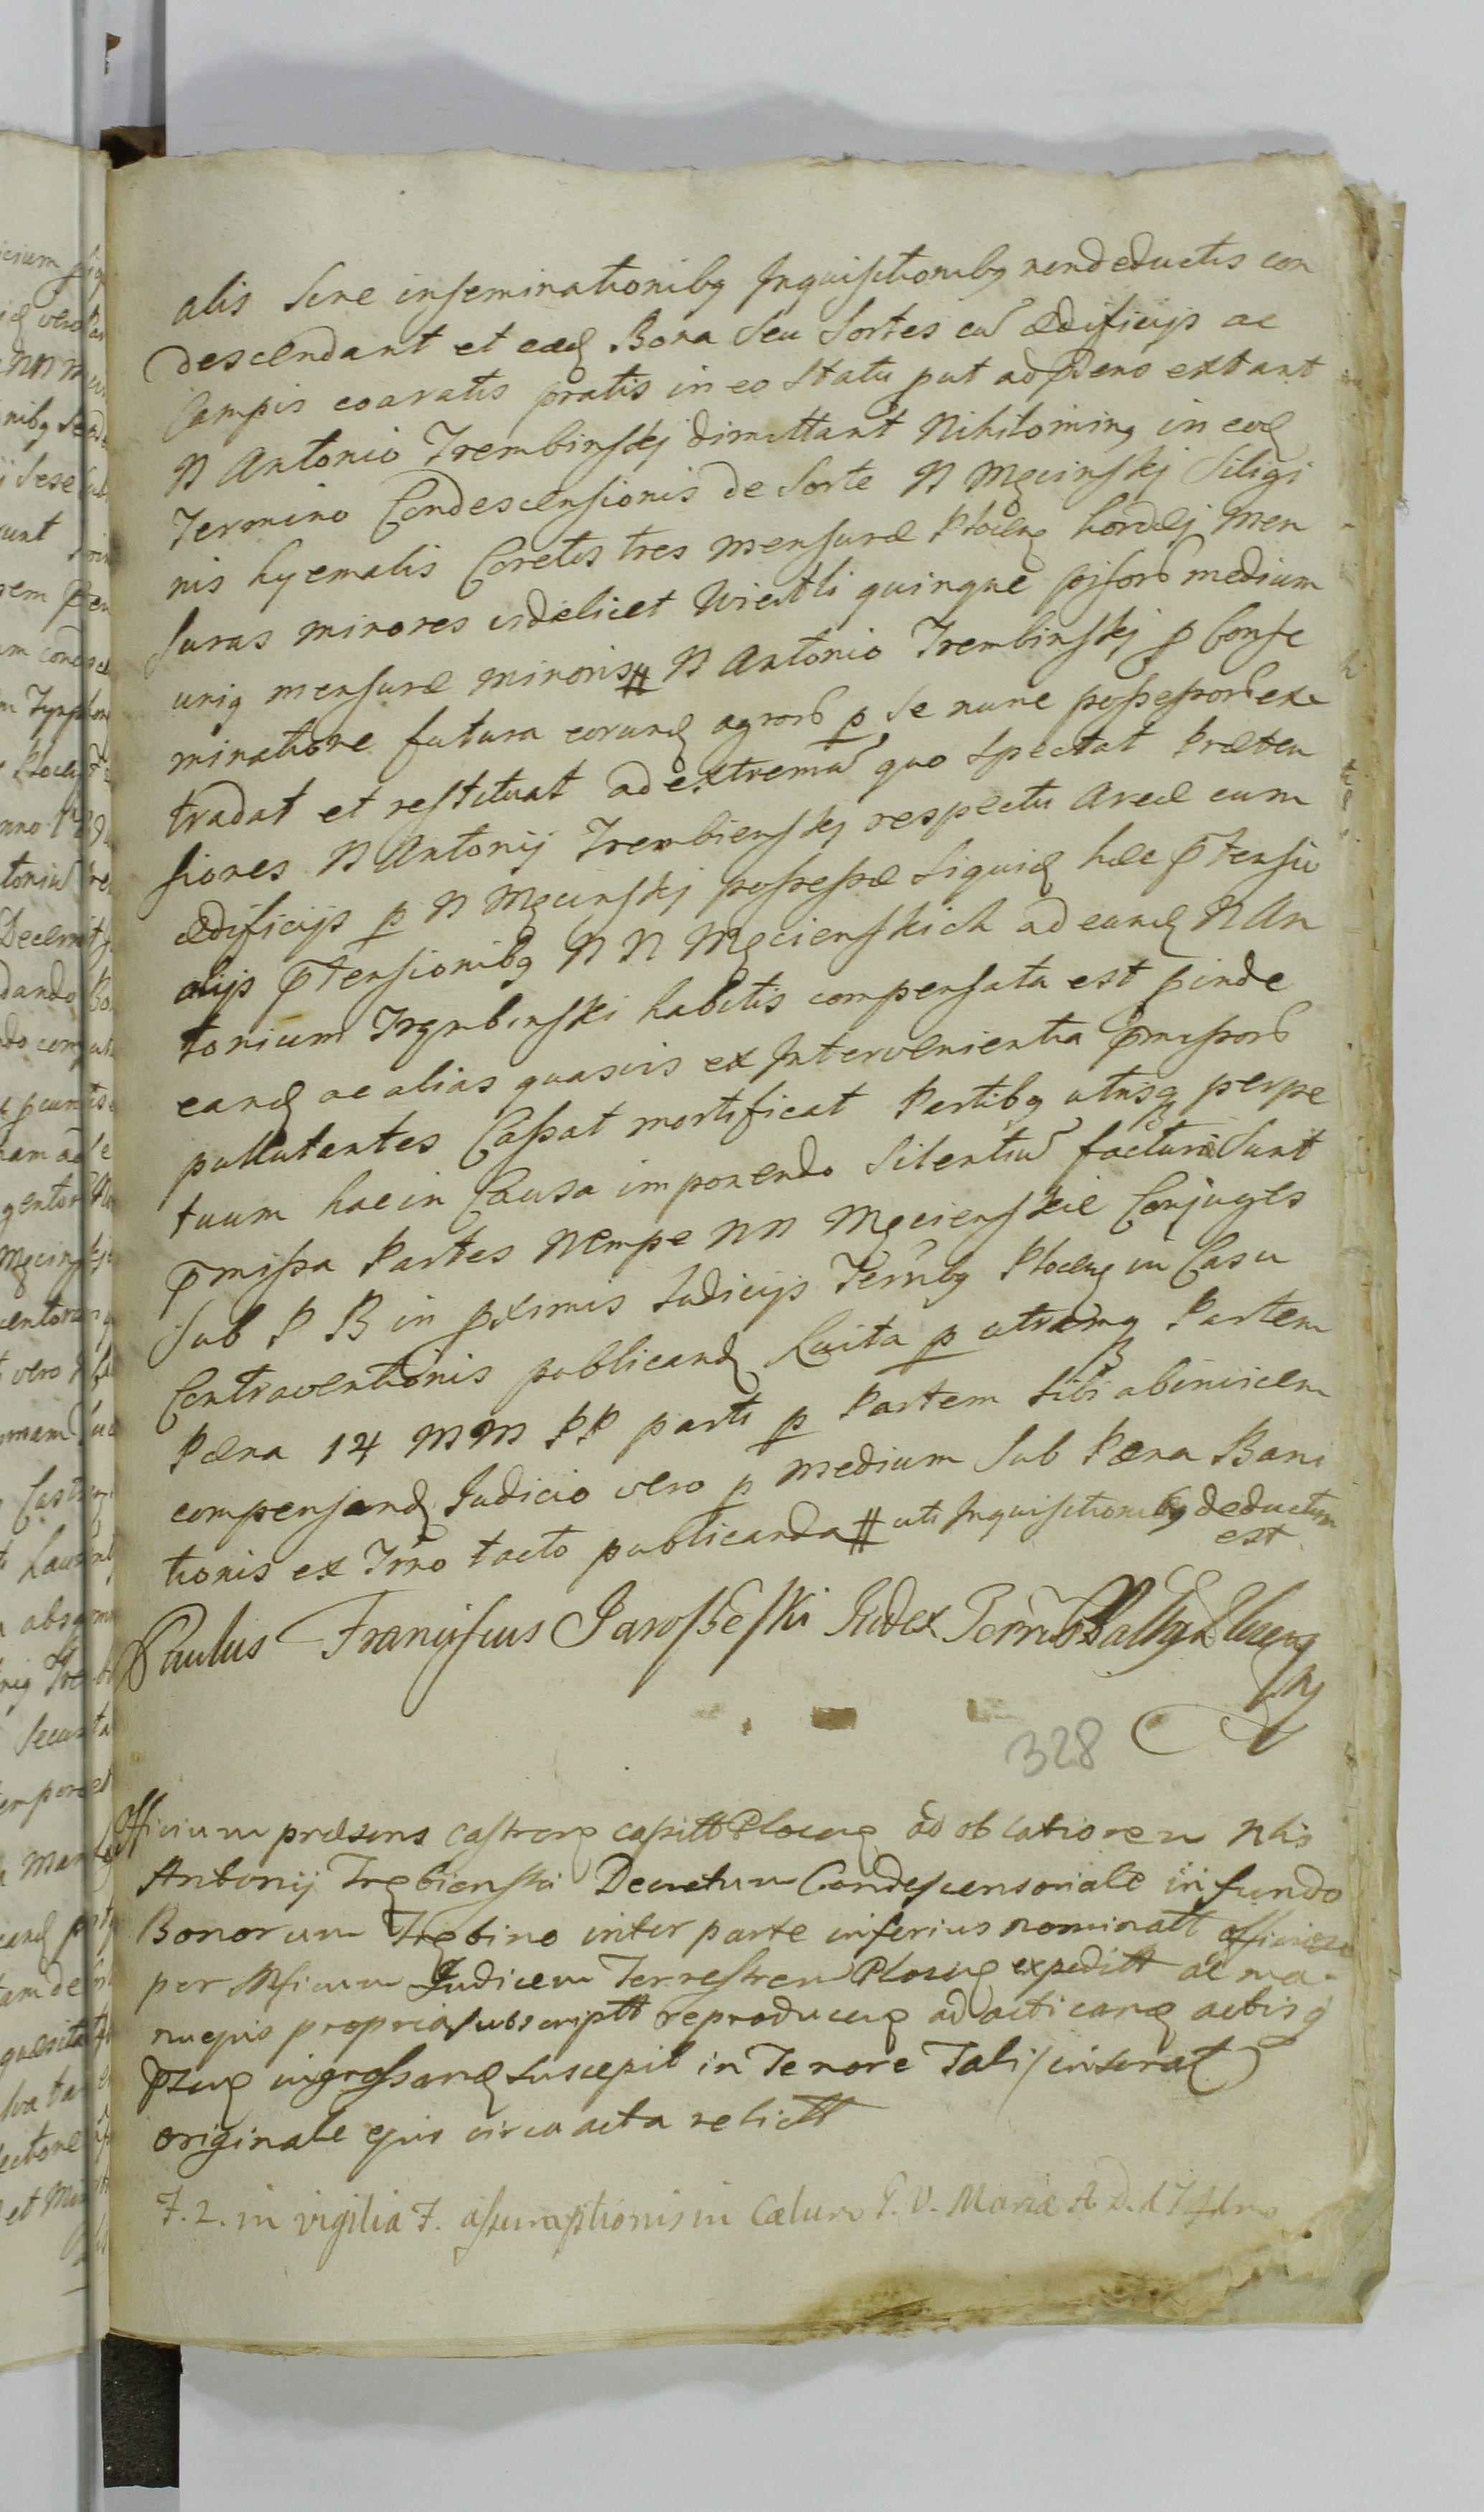 alis sive inseminationibq Inquisitionibq nondeductis con
descendant et eadq Bona seu Sortes cũ ædificijs ac
Campis coaratis pratis in eo Statu put adpdens extant
N Antonio Trembinskj dimittant Nihiloming in eodq
Termino Condescensionis de Sorte N Męcinskj Siligi
nis hyemalis Coretos tres mensuræ Plocenq hordej Men
suras minores videlicet Wiertli quinque pisorũ medium
uniq mensuræ minoris # N Antonio Trembinskj p Conse
minatione futura eorundq agrorũ p se nunc possessorũ ex
tradat et restituat ad extremũ quo spectat Præten
siones N Antonij Trembienskj respectu Areæ cum
ædificijs p N Męcinskj possessæ siquidq hæc prtensio
alijs prtensionibq N N Męcienskich ad eundq N An
tonium Trębinski habitis compensata est pinde
eandq ac alias quasvis ex Intervenientia pmissorũ
pullulantes Cassat mortificat Partibq utrisq perpe
tuum hac in Causa imponendo silentiũ facturæ sunt
pmissa Partes Nempe NN Męcienskie Conjuges
sub P B in pximis Judicijs Terribq Plocenq in Casu
Contraventionis publicandq Luita p utramq Partem
Pæna 14 MM PP parti p Partem sibi abinvicem
compensandq Judicio vero p medium sub Pæna Bani
tionis ex Trno tacto publicanda # uti Inquisitionibq deductum
est
Paulus Franciscus Jaroszeski Judex Terris Plocenq
328
Officium præsens castrenq capitt Plocenq ad oblationem Nlis
Antonij Trębienski Decretum Condescensoriale in fundo
Bonorum Trębino inter parte inferius nominatt officiose
per Mficum Judicem Terrestrem Plocenq expeditt ac ma-
nuejus propria subscriptt reproducenq ad acticanq actisq
psenq ingrossandq suscepit in Tenore Tali/ inserat/
originale ejus circa acta relictt
F. 2. in vigilia F. assumptionis in Cælum B. V. Mariæ A. D.